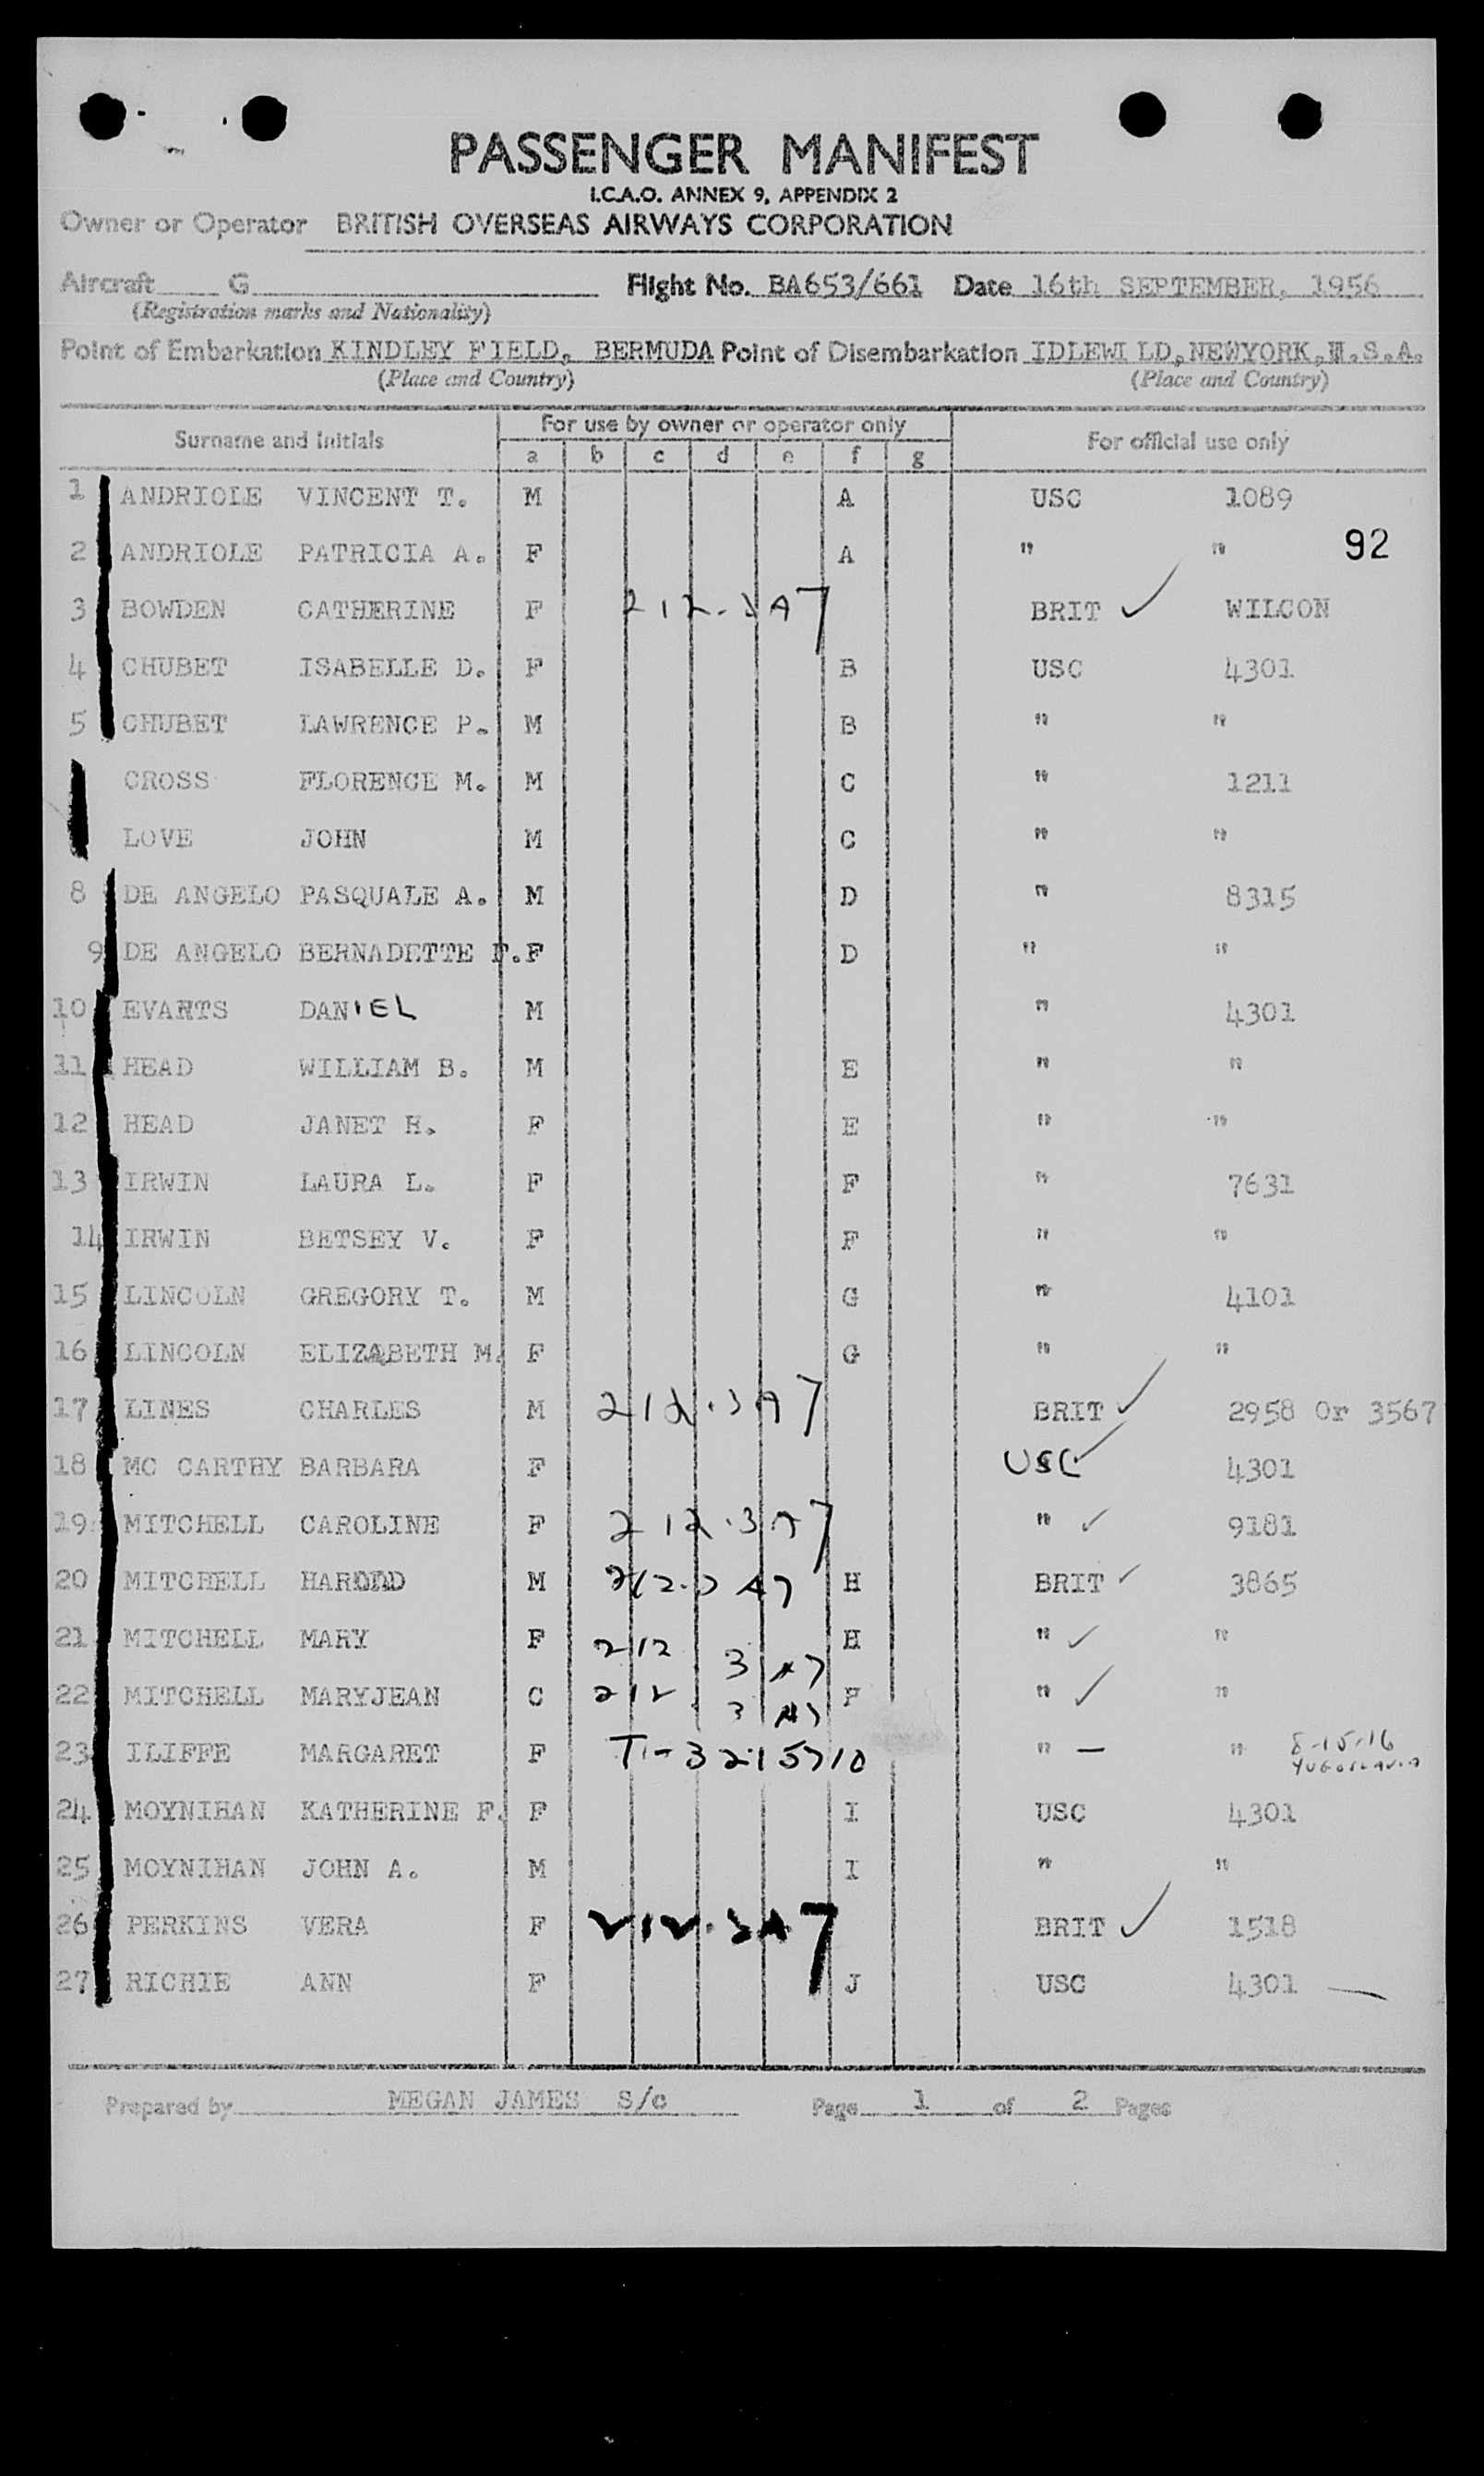 PASSENGER MANIFEST
I.C.A.O. ANNEX 9, APPENDIX 2
Owner or Operator BRITISH OVERSEAS AIRWAYS CORPORATION
Aircraft G Flight No. BA653/661 Date 16th SEPTEMBER, 1956
(Registration marks and Nationality)
Point of Embarkation KINDLEY FIELD, BERMUDA Point of Disembarkation IDLEWI LD, NEWYORK, U.S.A.
(Place and Country) (Place and Country)
Surname and Initials For use by owner or operator only For official use only
a b c d e f g
1 ANDRIOLE VINCENT T. M A USC 1089
2 ANDRIOLE PATRICIA A. F A " " 92
3 BOWDEN CATHERINE F 212.3A7 BRIT ✓ WILCON
4 CHUBET ISABELLE D. F B USC 4301
5 CHUBET LAWRENCE P. M B " "
CROSS FLORENCE M. M C " 1211
LOVE JOHN M C " "
8 DE ANGELO PASQUALE A. M D " 8315
9 DE ANGELO BERNADETTE F. F D " "
10 EVARTS DANIEL M " 4301
11 HEAD WILLIAM B. M E " "
12 HEAD JANET H. F E " "
13 IRWIN LAURA L. F F " 7631
14 IRWIN BETSEY V. F F " "
15 LINCOLN GREGORY T. M G " 4101
16 LINCOLN ELIZABETH M. F G " "
17 LINES CHARLES M 212.3A7 BRIT ✓ 2958 Or 3567
18 MC CARTHY BARBARA F USC ✓ 4301
19 MITCHELL CAROLINE F 212.3A7 " ✓ 9181
20 MITCHELL M 212.3A7 H BRIT ✓ 3865
21 MITCHELL MARY F 212 3A7 H " ✓ "
22 MITCHELL MARYJEAN C 212 3A7 F " ✓ "
23 ILIFFE MARGARET F T-3215710 " — " 8-15-16
YUGOSLAVIA
24 MOYNIHAN KATHERINE F. F I USC 4301
25 MOYNIHAN JOHN A. M I " "
26 PERKINS VERA F 212.3A7 BRIT ✓ 1518
27 RICHIE ANN F J USC 4301 —
Prepared by MEGAN JAMES S/c Page 1 of 2 Pages